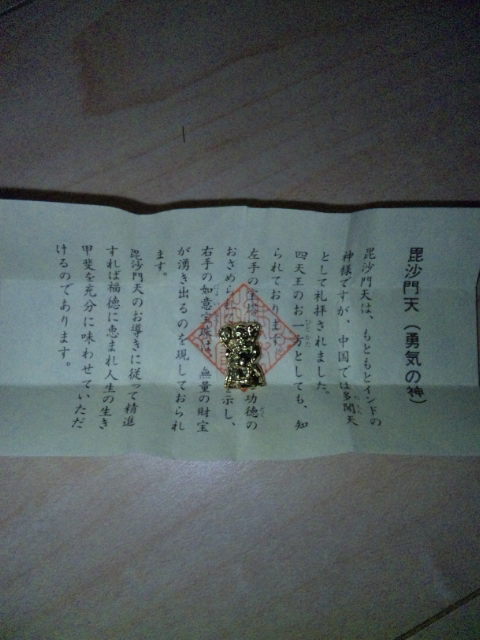 毘沙門天（勇気の神）
毘沙門天は、もともとインドの
神様ですが、中国では多聞天
として礼拝されました。
四天王のお一方としても、知
られております
左手の宝塔 功徳の
おさめられ 示し、
右手の如意 は、無量の財宝
が湧き出るのを現しておられ
ます。
毘沙門天のお導きに従って精進
すれば福徳に恵まれ人生の生き
甲斐を充分に味わせていただ
けるのであります。